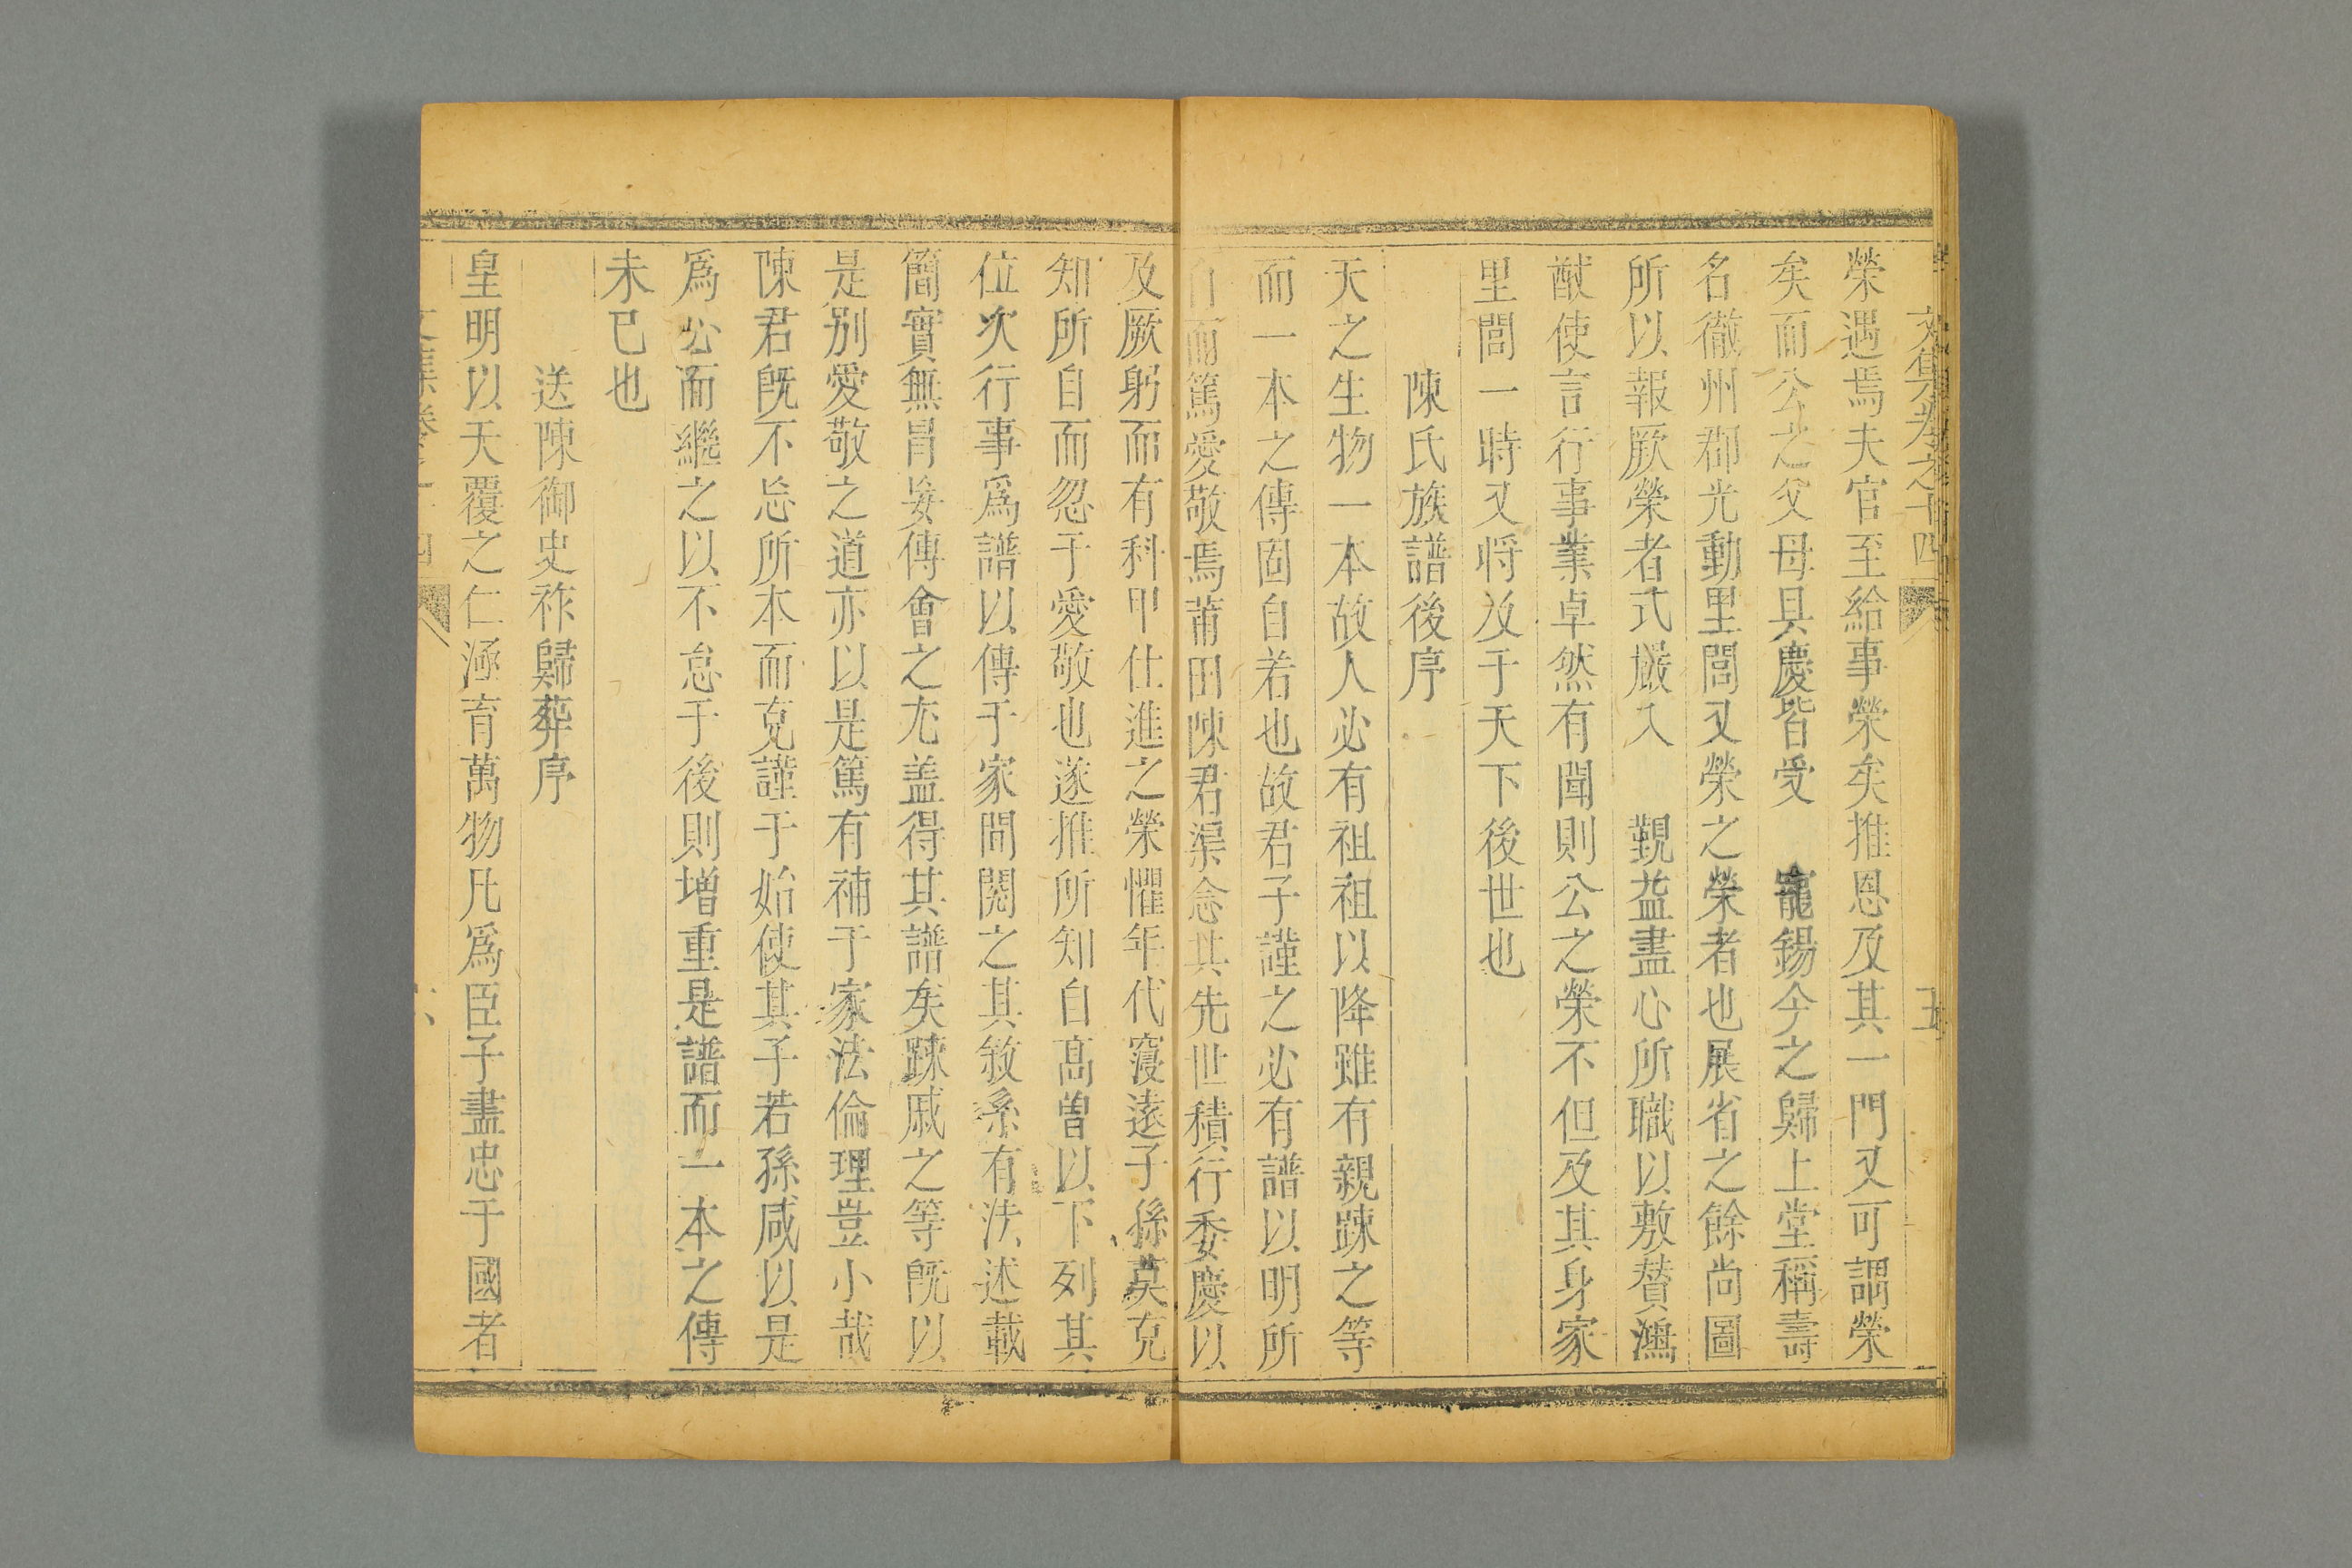 文集卷之十四 五
榮遇焉夫官至給事榮矣推恩及其一門又可謂榮
矣而公之父母具慶皆受 寵錫今之歸上堂稱壽
名徹州郡光動里閭又榮之榮者也展省之餘尚圖
所以報厥榮者式嚴入 覲益盡心所職以敷賛鴻
猷使言行事業卓然有聞則公之榮不但及其身家
里閭一時又将及于天下後世也
陳氏族譜後序
天之生物一本故人必有祖祖以降雖有親踈之等
而一本之傳固自若也故君子謹之必有譜以明所
自而篤愛敬焉莆田陳君渠念其先世積行委慶以
及厥躬而有科甲仕進之榮懼年代寖遠子孫莫克
知所自而忽于愛敬也遂推所知自髙曽以下列其
位次行事爲譜以傳于家間閱之其敘系有法述載
簡實無冒妄傳會之尤盖得其譜矣踈戚之等旣以
是别愛敬之道亦以是篤有補于家法倫理豈小哉
陳君旣不忘所本而克謹于始使其子若孫咸以是
爲公而繼之以不怠于後則增重是譜而一本之傳
未已也
送陳御史祚歸葬序
皇明以天覆之仁涵育萬物凡爲臣子盡忠于國者
文集卷之十四 六